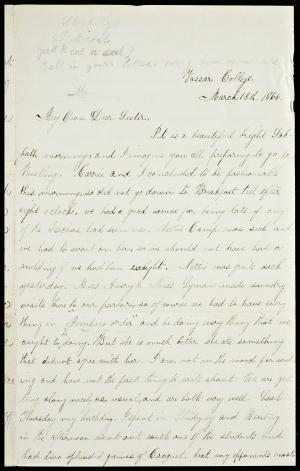 Stockings
Petticoats
Vassar College,
March 18th, 1866.
My Own Dear Sister,
It is a beautiful bright Sab-
bath morning, and I imagine you all preparing to go to
Meeting. Carrie and I concluded to be fashionable
this morning, so did not go down to Breakfast till after
eight o'clock, we had a good excuse for being late if any
of the Teachers had seen us. Nettie Camp was sick and
we had to wait on her, so we should not have had a
scolding if we had been caught. Nettie was quite sick
yesterday. Miss Lyman made sundry
visits here to our parlor, so of course we had to have every
thing in "Number order" and be doing every thing that we
ought to be doing. But she is much better, she ate something
that did not agree with her. I am not in the mood for wri-
ting and have not the first thing to write about. We are get-
ting along nicely as usual, and are both very well. Last
Thursday my birthday, I spent in Studying and Reciting
in the afternoon went out with one of the students and
had two splendid games of Croquet, beat my opponents most